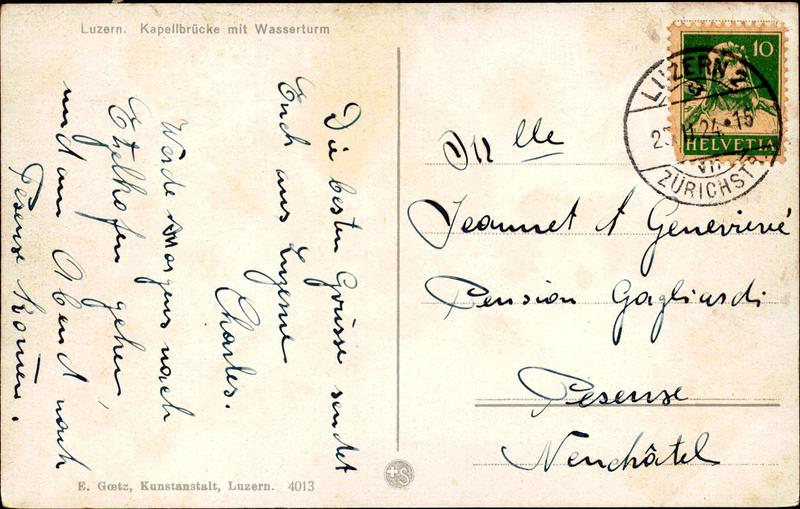 Luzern. Kapellbrücke mit Wasserturm
Die besten Grüsse sendet
Euch aus Luzerne
Charles.
Werde Morgens nach
Etzelkofen gehen
und am Abend nach
Peseux kommen.
E. Gœtz, Kunstanstalt, Luzern. 4013
S
10
HELVETIA
LUZERN 2
24·15
VII
ZÜRICHSTR.
Mlle
Jeannet et Genevievé
Pension Gagliardi
Peseux
Neuchâtel